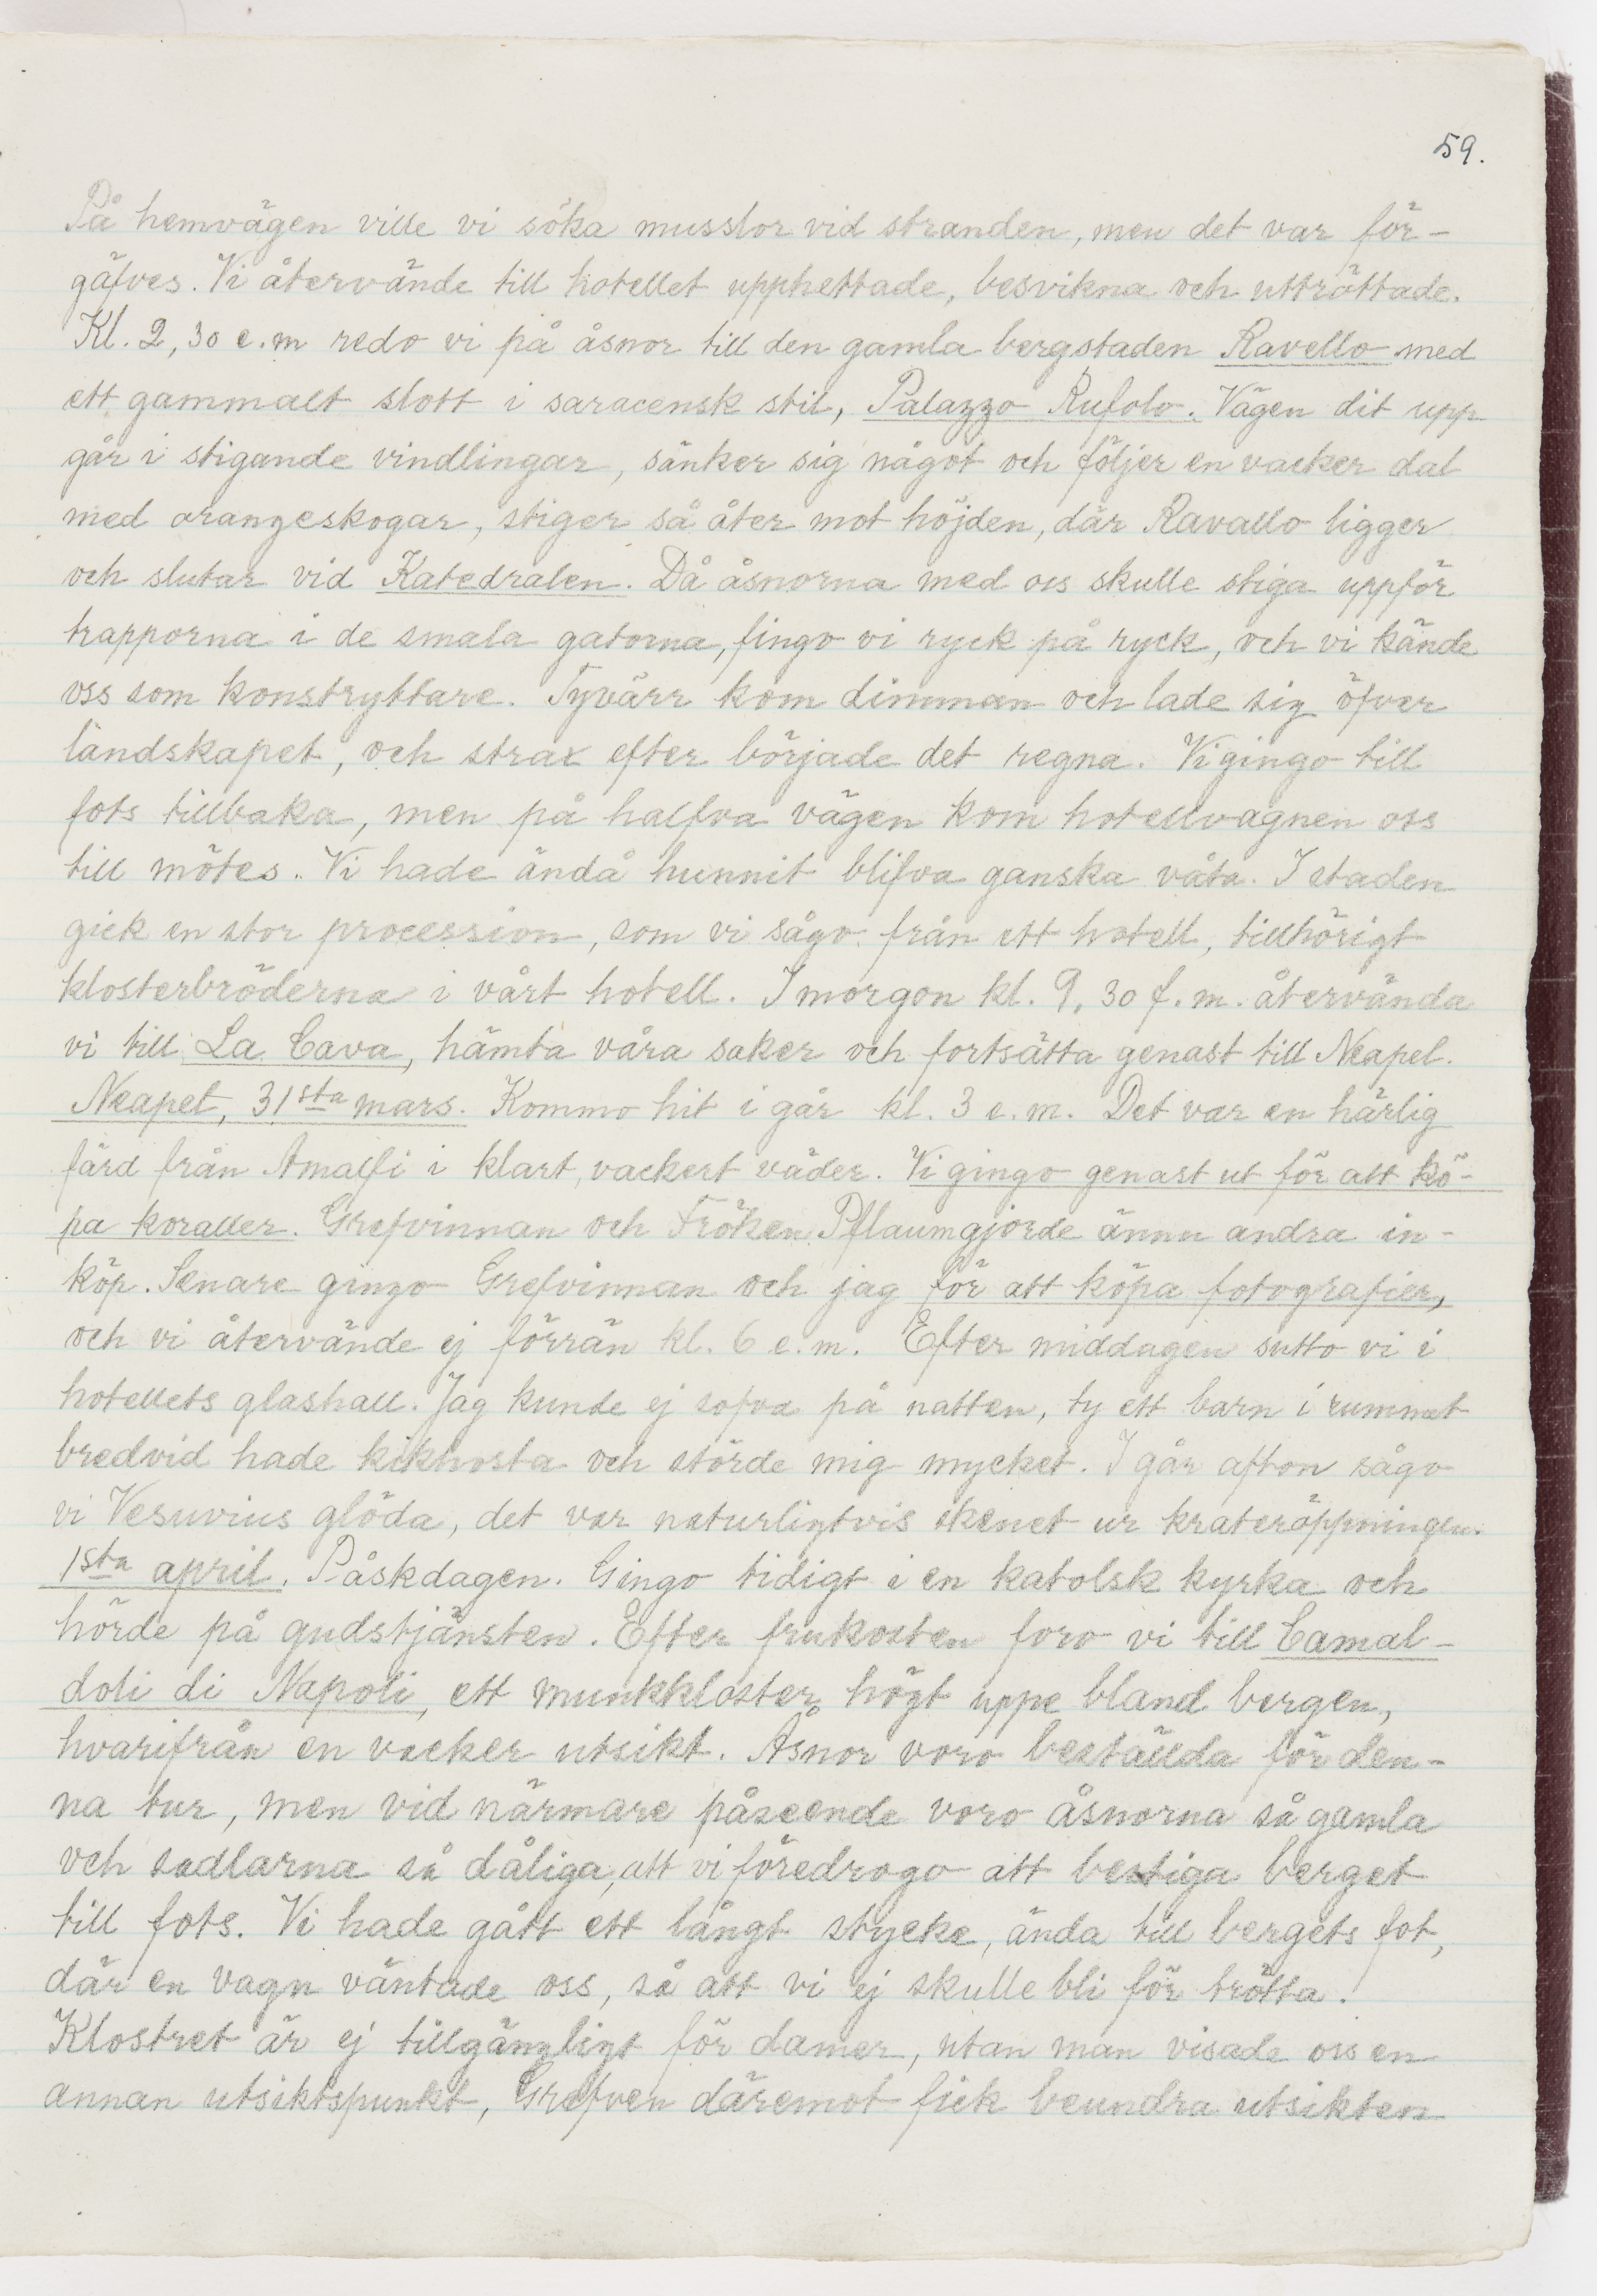 59.
På hemvägen ville vi söka musslor vid stranden, men det var för-
gäfves. Vi återvände till hotellet upphettade, besvikna och uttröttade.
Kl. 2,30 e.m redo vi på åsnor till den gamla bergstaden Ravello med
ett gammalt slott i saracensk stil, Palazzo Rufolo. Vägen dit upp
går i stigande vindlingar, sänker sig något och följer en vacker dal
med orangeskogar, stiger så åter mot höjden, där Ravallo ligger
och slutar vid Katedralen. Då åsnorna med oss skulle stiga uppför
trapporna i de smala gatorna, fingo vi ryck på ryck, och vi kände
oss som konstryttare. Tyvärr kom dimman och lade sig öfver
landskapet, och strax efter började det regna. Vi gingo till
fots tillbaka, men på halfva vägen kom hotellvagnen oss
till mötes. Vi hade ändå hunnit blifva ganska våta. I staden
gick en stor procession, som vi sågo från ett hotell, tillhörigt
klosterbröderna i vårt hotell. I morgon kl. 9,30 f.m. återvända
vi till La Cava, hämta våra saker och fortsätta genast till Neapel.
Neapel, 31sta mars. Kommo hit i går kl. 3 e.m. Det var en härlig
färd från Amalfi i klart, vackert väder. Vi gingo genast ut för att kö-
pa koraller. Grefvinnan och Fröken Pflaum gjorde ännu andra in-
köp. Senare gingo Grefvinnan och jag för att köpa fotografier,
och vi återvände ej förrän kl. 6 e.m. Efter middagen sutto vi i
hotellets glashall. Jag kunde ej sofva på natten, ty ett barn i rummet
bredvid hade kikhosta och störde mig mycket. I går afton sågo
vi Vesuvius glöda, det var naturligtvis skenet ur krateröppningen.
1sta april. Påskdagen. Gingo tidigt i en katolsk kyrka och
hörde på gudstjänsten. Efter frukosten foro vi till Camal-
doli di Napoli, ett munkkloster högt uppe bland bergen,
hvarifrån en vacker utsikt. Åsnor voro beställda för den-
na tur, men vid närmare påseende voro åsnorna så gamla
och sadlarna så dåliga, att vi föredrogo att bestiga berget
till fots. Vi hade gått ett långt stycke, ända till bergets fot,
där en vagn väntade oss, så att vi ej skulle bli för trötta.
Klostret är ej tillgängligt för damer, utan man visade oss en
annan utsiktspunkt, Grefven däremot fick beundra utsikten